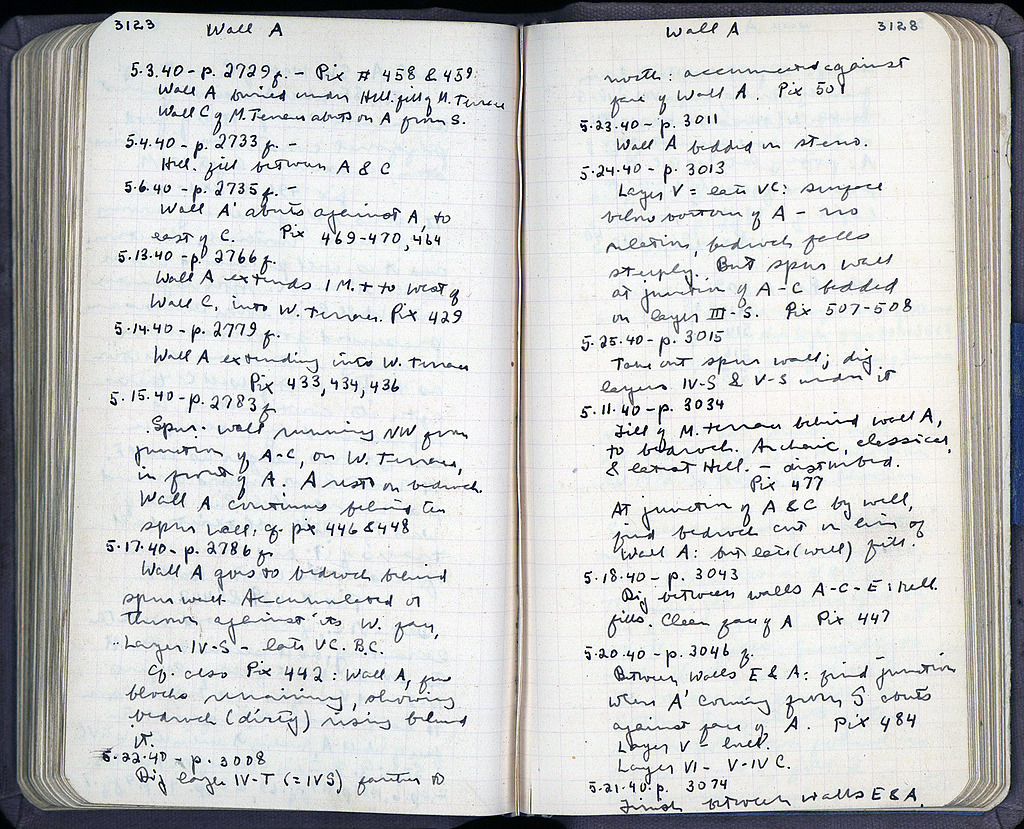 3123 Wall A
5.3.40 - p. 2729 f. - Pix # 458 & 459
Wall A buried under Hell. fill of M. Terrace
Wall C of M. Terrace abuts on A from S.
5.4.40 - p. 2733 f. -
Hell. fill between A & C
5.6.40 - p. 2735 f. -
Wall A' abuts against A, to
east of C. Pix 469-470, 464
5.13.40 - p. 2766 f.
Wall A extends 1 M. + to west of
Wall C, into W. Terrace. Pix 429
5.14.40 - p. 2779 f.
Wall A extending into W. Terrace
Pix 433, 434, 436
5.15.40 - p. 2783 f.
Spur-wall running NW from
junction of A-C, on W. Terrace,
in front of A. A rests on bedrock.
Wall A continues behind the
spur wall; cf. pix 446 & 448
5.17.40 - p. 2786 f.
Wall A goes to bedrock behind
spur wall. Accumulated or
thrown against its W. face,
Layer IV-S - late VC. B.C.
Cf. also Pix 442: Wall A, five
blocks remaining, showing
bedrock (dirty) rising behind
it.
5.22.40 - p. 3008
Dig layer IV-T (= IVS) farther to
Wall A 3128
north: accumulated against
face of Wall A. Pix 501
5.23.40 - p. 3011
Wall A bedded on stereo.
5.24.40 - p. 3013
Layer V = late VC: surface
below bottom of A - no
relation, bedrock falls
steeply. But spur wall
at junction of A-C bedded
on layer III-S. Pix 507-508
5.25.40 - p. 3015
Take out spur wall; dig
layers IV-S & V-S under it
5.11.40 - p. 3034
Fill of M. terrace behind wall A,
to bedrock. Archaic, classical,
& latest Hell. - disturbed.
Pix 477
At junction of A & C by well,
find bedrock cut in line of
Wall A: but late (well) fill.
5.18.40 - p. 3043
Dig between walls A-C-E: Hell.
fills. Clean face of A Pix 447
5.20.40 - p. 3046 f.
Between walls E & A: find junction
where A' coming from S abuts
against face of A. Pix 484
Layer V -
Layer VI - V-IV C.
5.21.40 p. 3074
Finish between walls E & A.